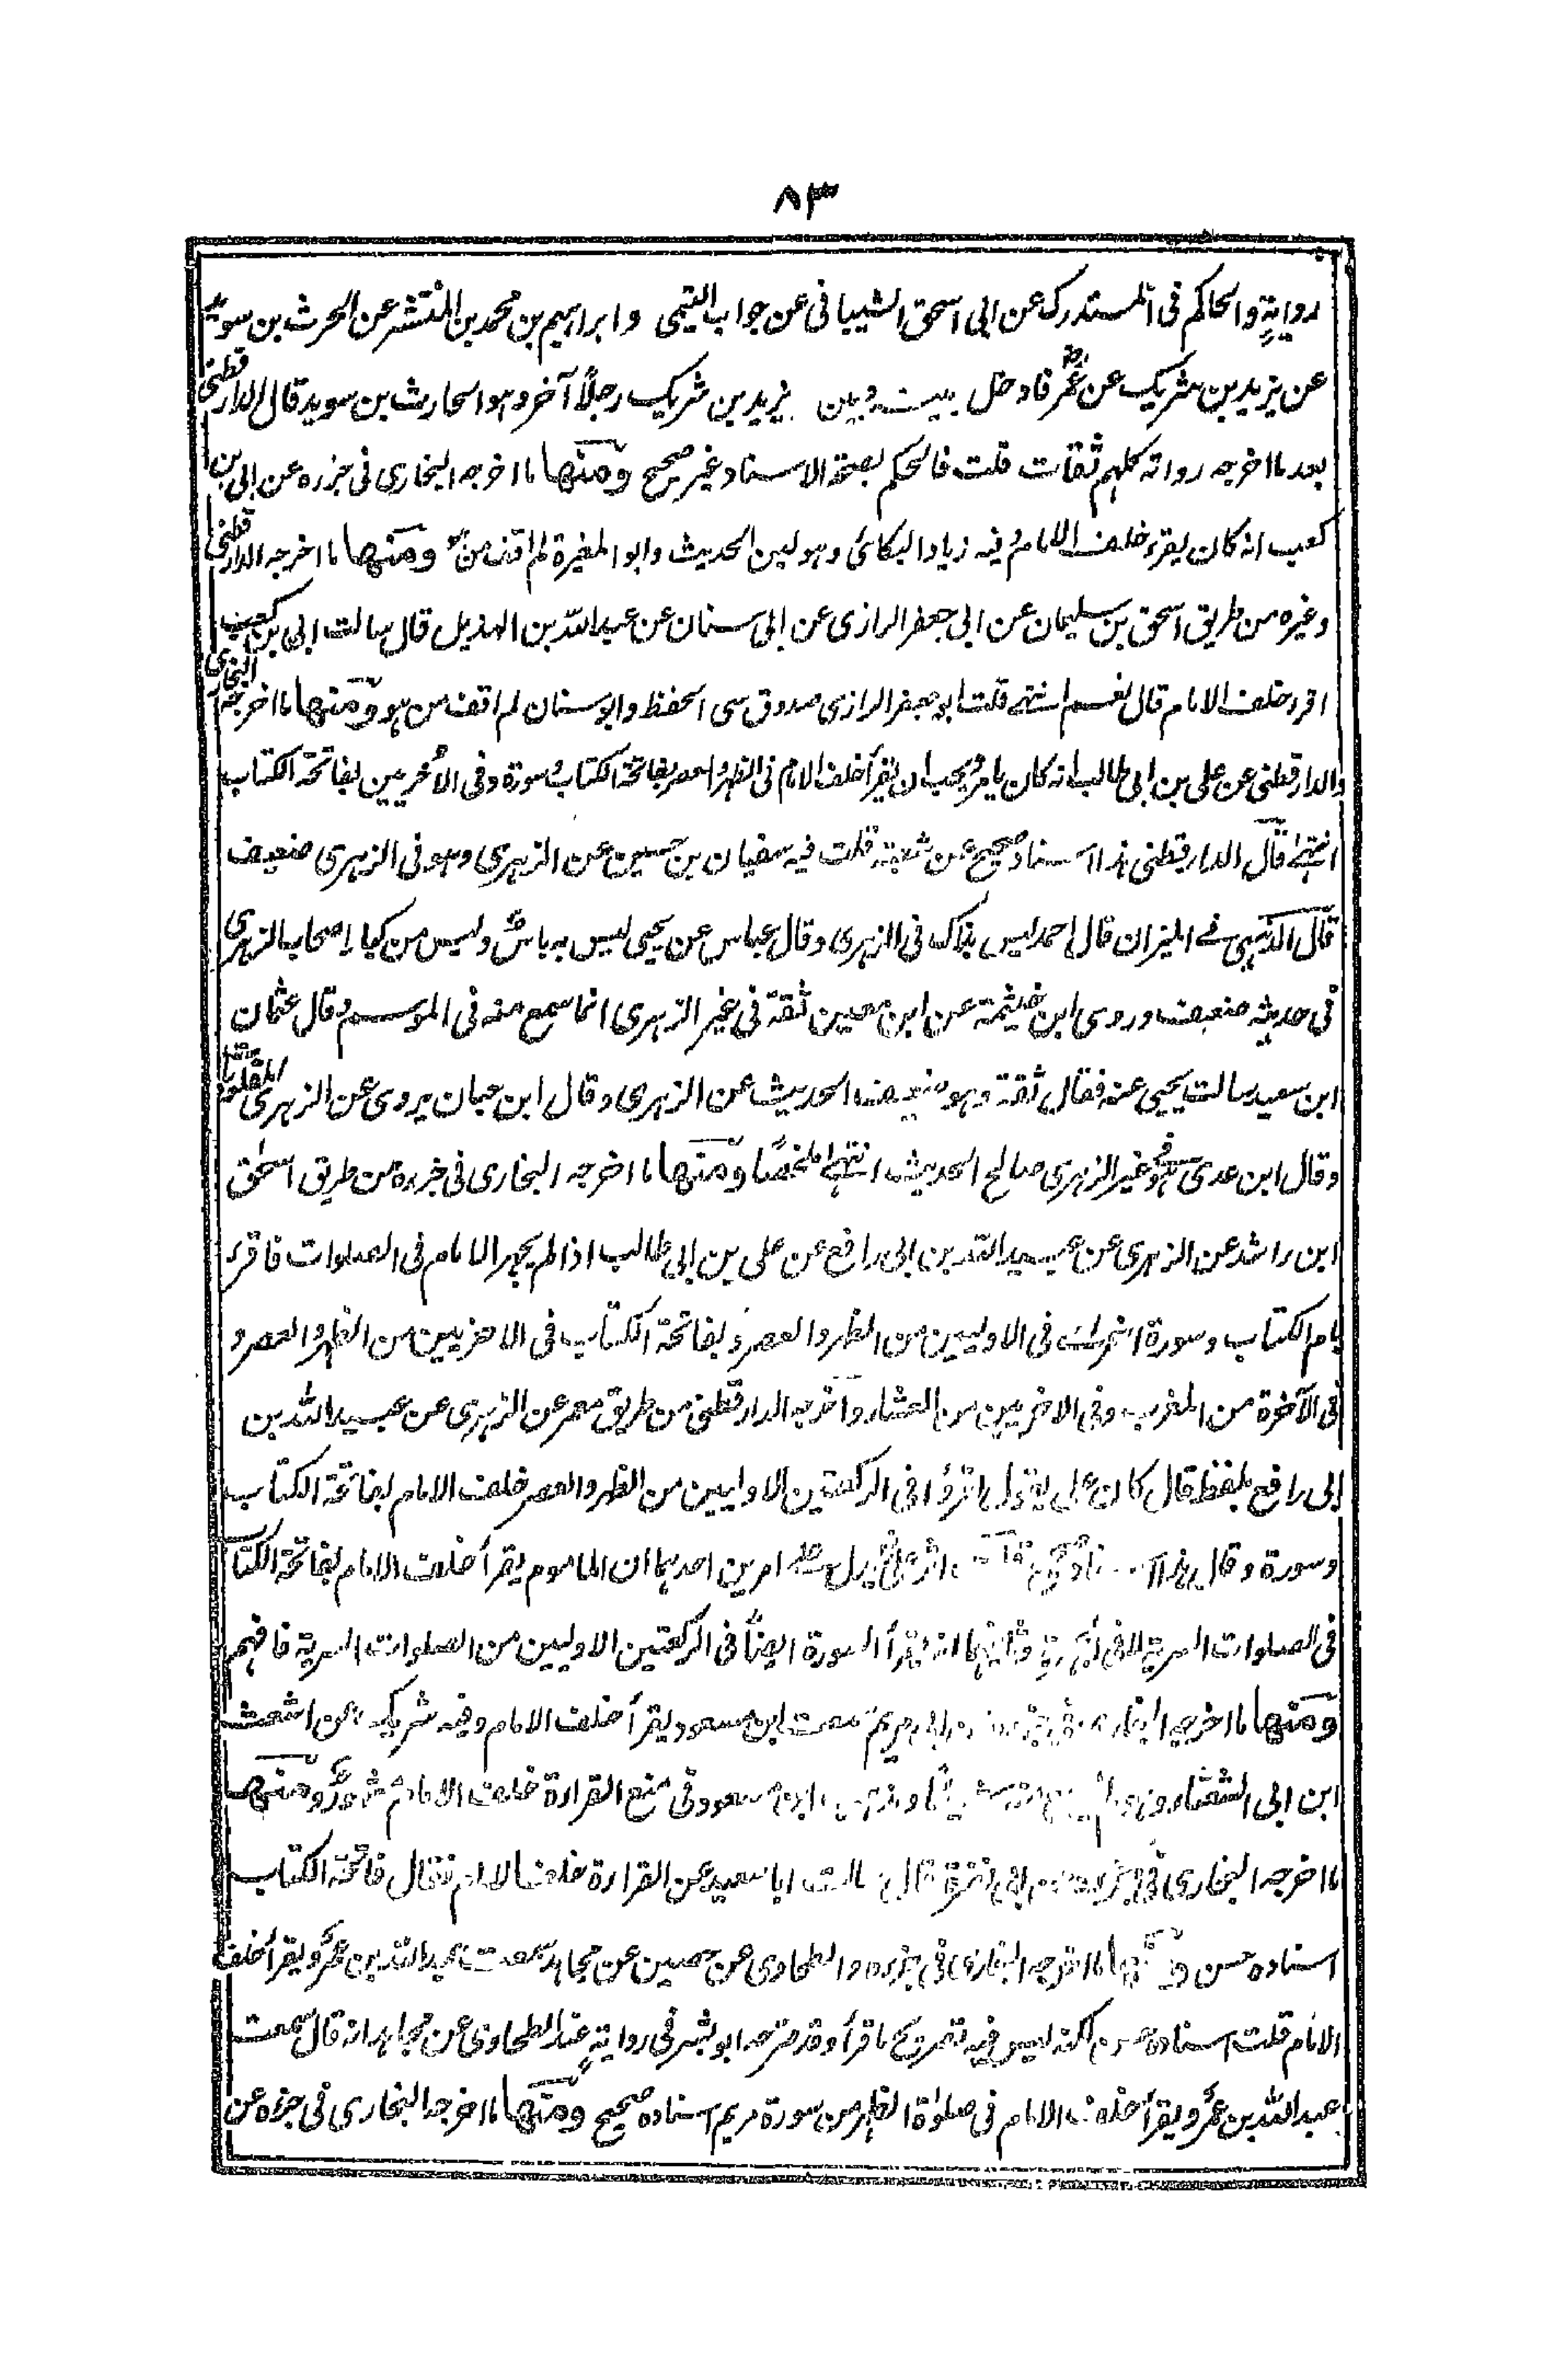 ٨٣
رواية والحاكم فى المستدرك عن ابى اسحق الشيبانى عن جواب التيمى وابراهيم بن محمد بن المنتشر عن الحرث بن سويد
عن يزيد بن شريك عن عمر رض فادخل بينه وبين يزيد بن شريك رجلاً آخر وهو الحارث بن سويد قال الدارقطنى
بعد ما اخرجه رواته كلهم ثقات قلت فالحكم بصحة الاسناد غير صحيح ومنها ما اخرجه البخارى فى جزءه عن ابى بن
كعب انه كان يقرء خلف الامام وفيه زياد البكائى وهو لين الحديث وابو المغيرة لم اقف من هو ومنها ما اخرجه الدارقطنى
وغيره من طريق اسحق بن سليمان عن ابى جعفر الرازى عن ابى سنان عن عبدالله بن الهذيل قال سالت ابى بن كعب
اقرء خلف الامام قال نعم انتهى قلت ابو جعفر الرازى صدوق سئ الحفظ وابو سنان لم اقف من هو ومنها ما اخرجه البخارى
والدارقطنى عن على بن ابى طالب انه كان يامر ويحب ان يقرأ خلف الامام فى الظهر والعصر بفاتحة الكتاب وسورة وفى الأخريين بفاتحة الكتاب
انتهى قال الدارقطنى هذا اسناد صحيح عن شعبة قلت فيه سفيان بن حسين عن الزهرى وهو فى الزهرى ضعيف
قال الذهبى فے الميزان قال احمد ليس بذاك فى الزهرى وقال عباس عن يحيى ليس به باس وليس من كبار اصحاب الزهرى
فى حديثه ضعيف وروى ابن خيثمة عن ابن معين ثقة فى غير الزهرى انما سمع منه فى الموسم وقال عثمان
ابن سعيد سالت يحيى عنه فقال ثقة وهو ضعيف الحديث عن الزهرى وقال ابن حبان يروى عن الزهرى المقلوبات
وقال ابن عدى هو فى غير الزهرى صالح الحديث انتهى ملخصًا ومنها ما اخرجه البخارى فى جزءه من طريق اسحٰق
ابن راشد عن الزهرى عن عبيدالله بن ابى رافع عن على بن ابى طالب اذا لم يجهر الامام فى الصلوات فاقرء
بام الكتاب وسورة اخرى فى الاوليين من الظهر والعصر وبفاتحة الكتاب فى الاخريين من الظهر والعصر و
فى الآخرة من المغرب وفى الاخريين من العشاء وآخرجه الدارقطنى من طريق معمر عن الزهرى عن عبيدالله بن
ابى رافع بلفظ قال كان على يقول اقرؤا فى الركعتين الاوليين من الظهر والعصر خلف الامام بفاتحة الكتاب
وسورة وقال هذا اسناد صحيح قلت اثر على يدل على امرين احدهما ان الماموم يقرأ خلف الامام بفاتحة الكتاب
فى الصلوات السرية لا فى الجهرية وثانيهما انه يقرأ السورة ايضًا فى الركعتين الاوليين من الصلوات السرية فافهم
ومنها ما اخرجه البخارى فى جزءه عن ابى مريم سمعت ابن مسعود يقرأ خلف الامام وفيه شريك عن اشعث
ابن ابى الشعثاء ابن مسعود فى منع القراءة خلف الامام مشهور ومنها
ما اخرجه البخارى فى جزءه عن ابى نضرة قال سالت ابا سعيد عن القراءة خلف الامام فقال فاتحة الكتاب
اسناده حسن ومنها ما اخرجه البخارى فى جزءه والطحاوى عن حصين عن مجاهد سمعت عبدالله بن عمرو يقرأ خلف
الامام قلت اسناده حسن لكنه ليس فيه تصريح ما قرأ وقد صرحه ابو بشر فى رواية عند الطحاوى عن مجاهد انه قال سمعت
عبدالله بن عمرو يقرأ خلف الامام فى صلوٰة الظهر من سورة مريم اسناده صحيح ومنها ما اخرجه البخارى فى جزءه عن